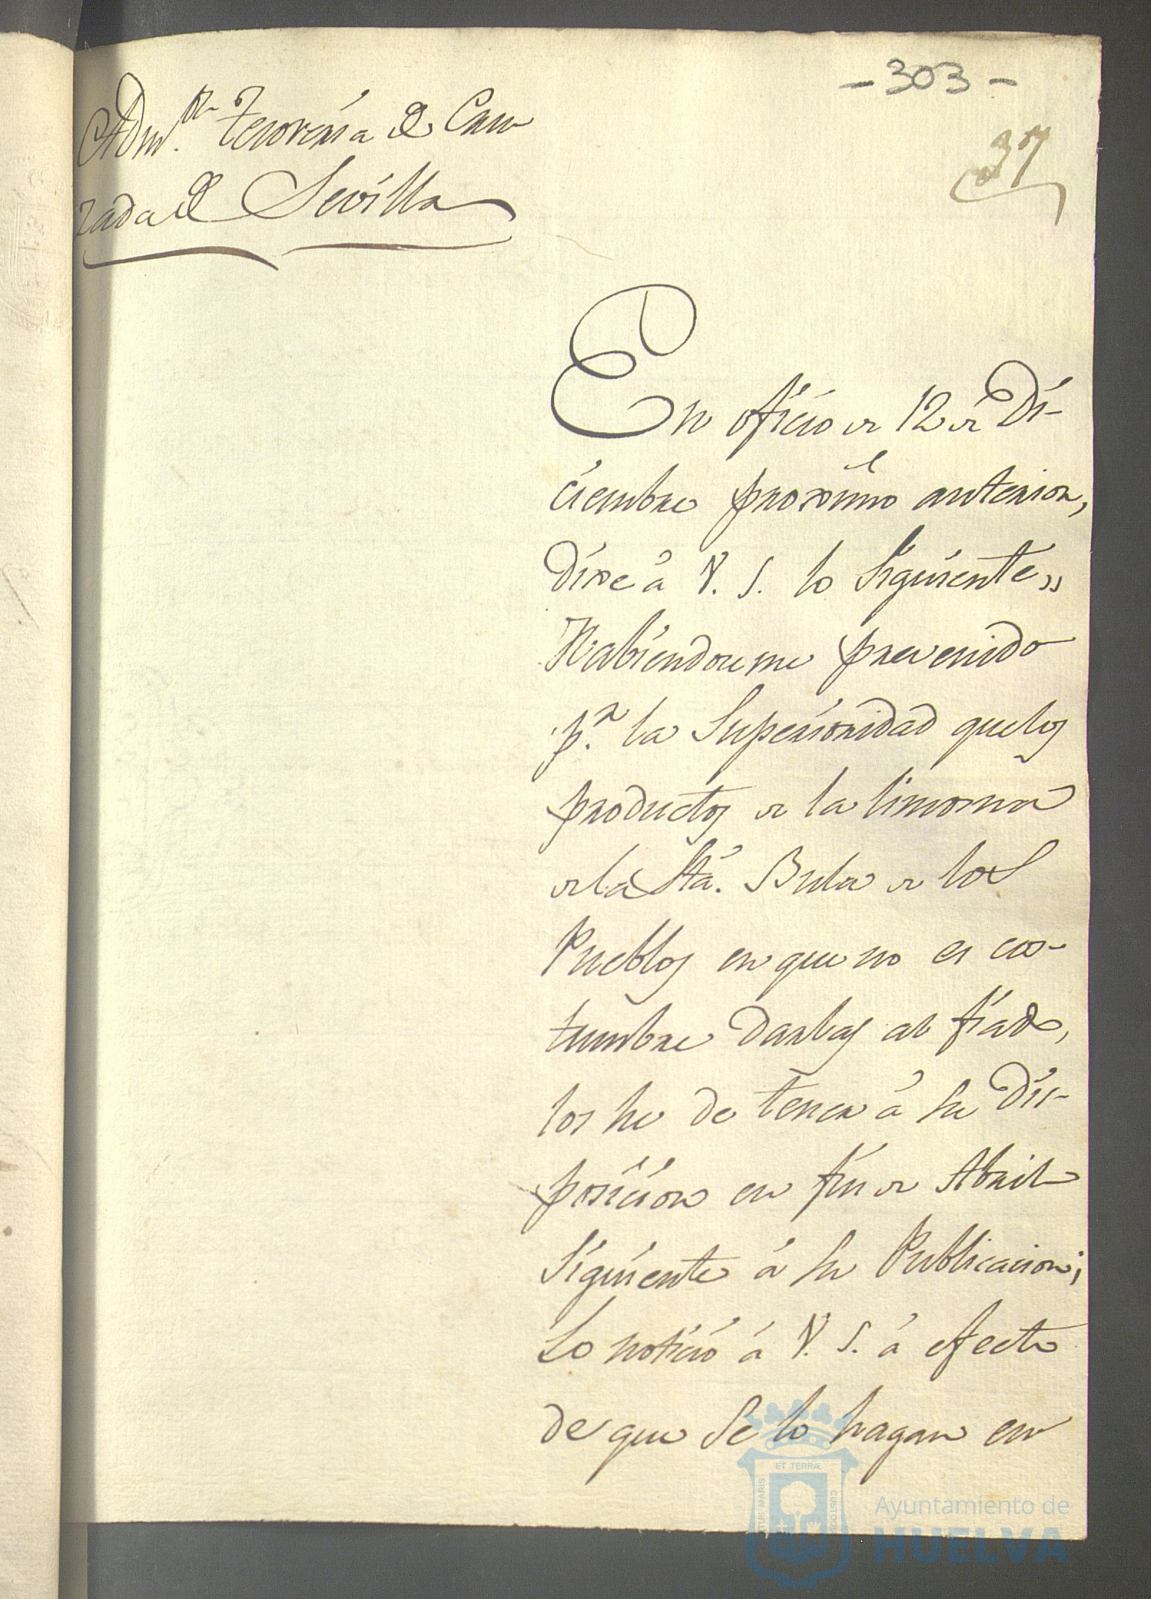 - 303 -
37
Adm.on Tesoreria de Cru
zada de Sevilla
En oficio de 12 de Di-
ciembre proximo anterior,
dixe á V. S. lo siguiente„
Habiendoseme prevenido
pr. la Superioridad que los
productos de la limosna
de la Sta. Bula de los
Pueblos en que no es cos-
tumbre darlas al fiado,
los he de tener á su dis-
posicion en fin de Abril
siguiente á su Publicacion;
Lo noticio á V. S. á efecto
de que se lo hagan en
Ayuntamiento de
HUELVA